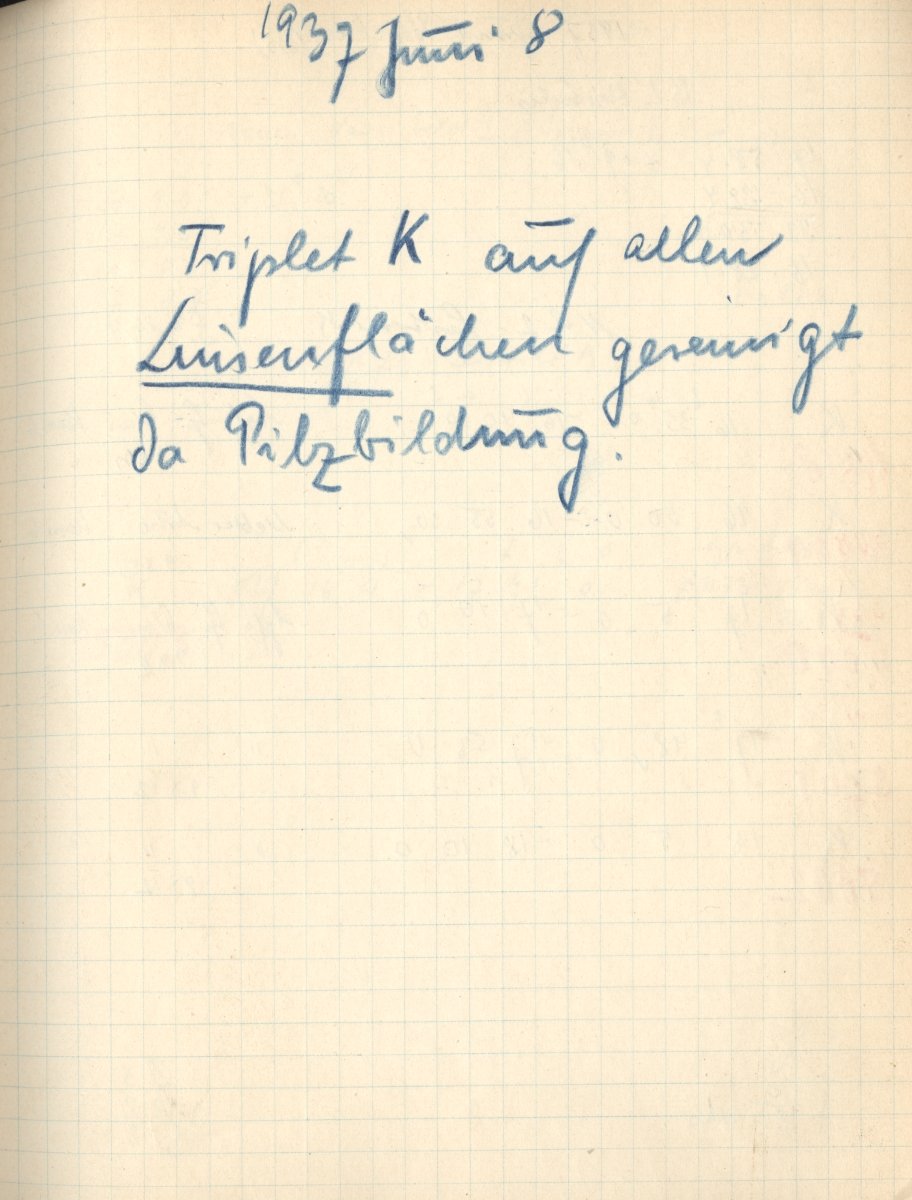 1937 Juni 8
Triplet K auf allen
Linsenflächen gereinigt
da Pilzbildung.